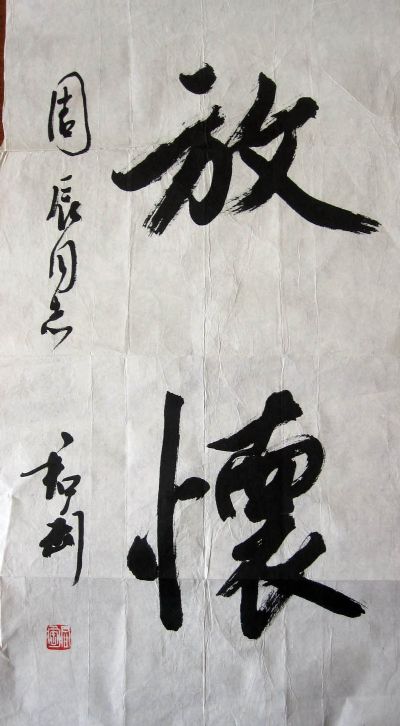 放懷
周辰同志